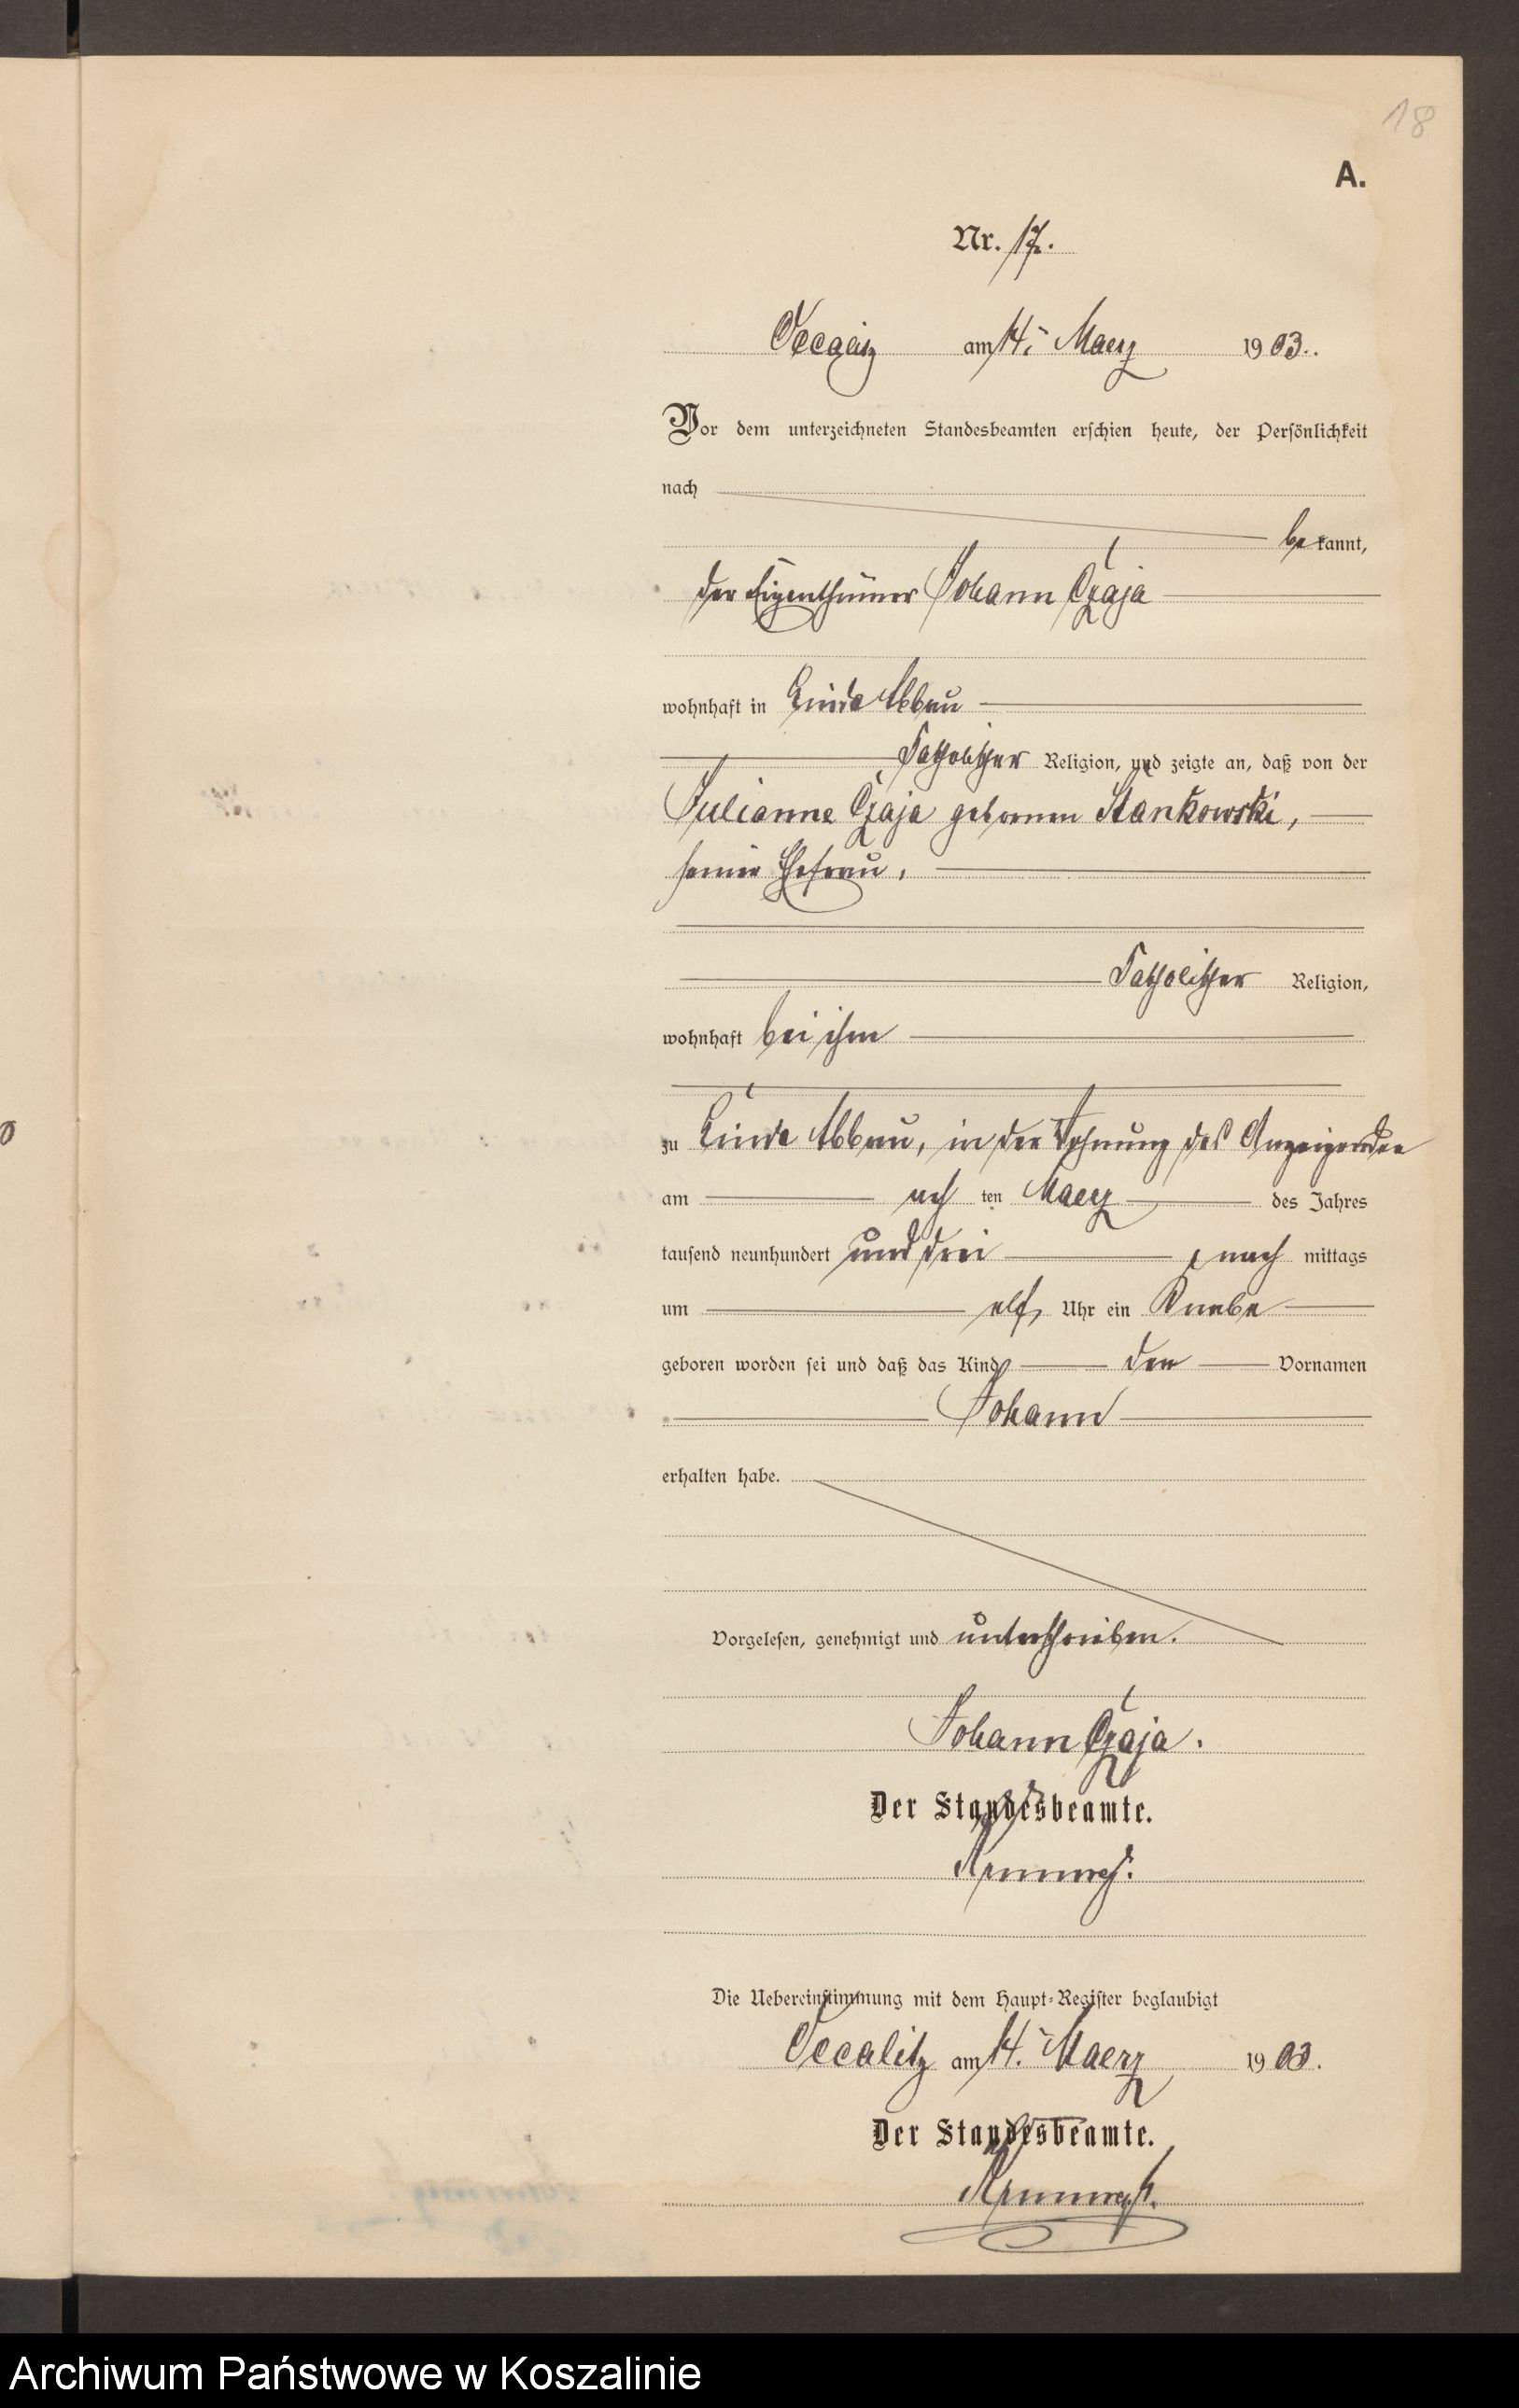 18
A.
Nr. 17.
Oecalitz am 14. Maerz 1903.
Vor dem unterzeichneten Standesbeamten erschien heute, der Persönlichkeit
nach
bekannt,
der Eigenthümer Johann Czaja
wohnhaft in Linde Abbau
katholischer Religion, und zeigte an, daß von der
Julianne Czaja gebornen Stankowski,
seiner Ehefrau,
katholischer Religion,
wohnhaft bei ihm
zu Linde Abbau, in der Wohnung des Anzeigenden
am acht ten Maerz des Jahres
tausend neunhundert und drei, nach mittags
um elf Uhr ein Knabe
geboren worden sei und daß das Kind den Vornamen
Johann
erhalten habe.
Vorgelesen, genehmigt und unterschrieben.
Johann Czaja.
Der Standesbeamte.
Die Uebereinstimmung mit dem Haupt-Register beglaubigt
Oecalitz am 14. Maerz 1903.
Der Standesbeamte.
Archiwum Państwowe w Koszalinie